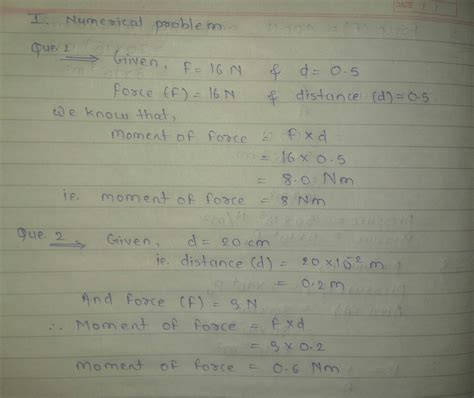 DATE
I. Numerical problem
Que. 1 ⇒ Given, f = 16 N & d = 0.5
force (f) = 16 N & distance (d) = 0.5
We know that,
Moment of force = f × d
= 16 × 0.5
= 8.0 Nm
ie. moment of force = 8 Nm
Que. 2 ⇒ Given, d = 20 cm
ie. distance (d) = 20 × 10⁻² m
= 0.2 m
And force (f) = 9 N
∴ Moment of force = f × d
= 9 × 0.2
Moment of force = 0.6 Nm